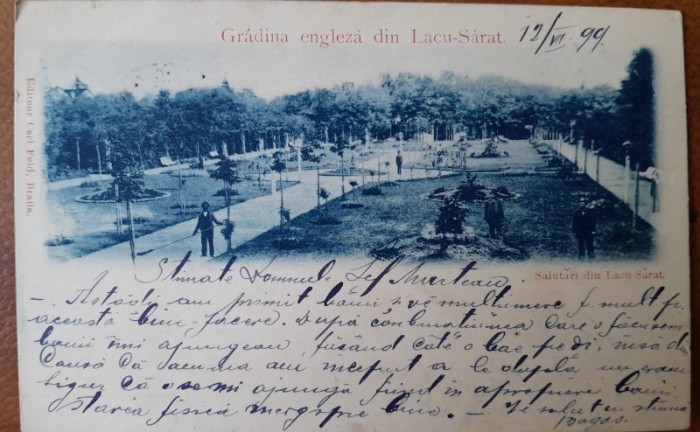 Grădina engleză din Lacu-Sărat.
12/VII 99
Editour Carl Feld, Braila.
Salutări din Lacu-Sărat.
Stimate Domnule
Astăzi am primit banii vĕ mulțumesc f. mult
această bine-facere. După combinațiunea care o făcusem
banii îmi ajungeau, făcând câte o bae pe di, însă din
causă că acuma am inceput a le
sigur că o se-mi ajungă fiind în apropiere banii
starea fisică merge spre bine. — Vĕ salut cu stima